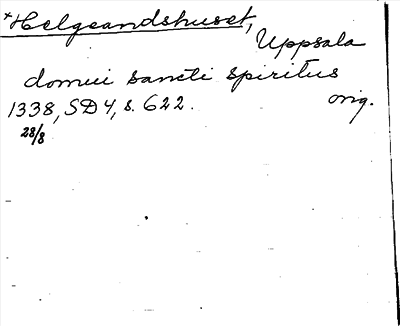 *Helgeandshuset,
Uppsala
domui sancti spiritus
1338, SD4, s. 622. orig.
28/8